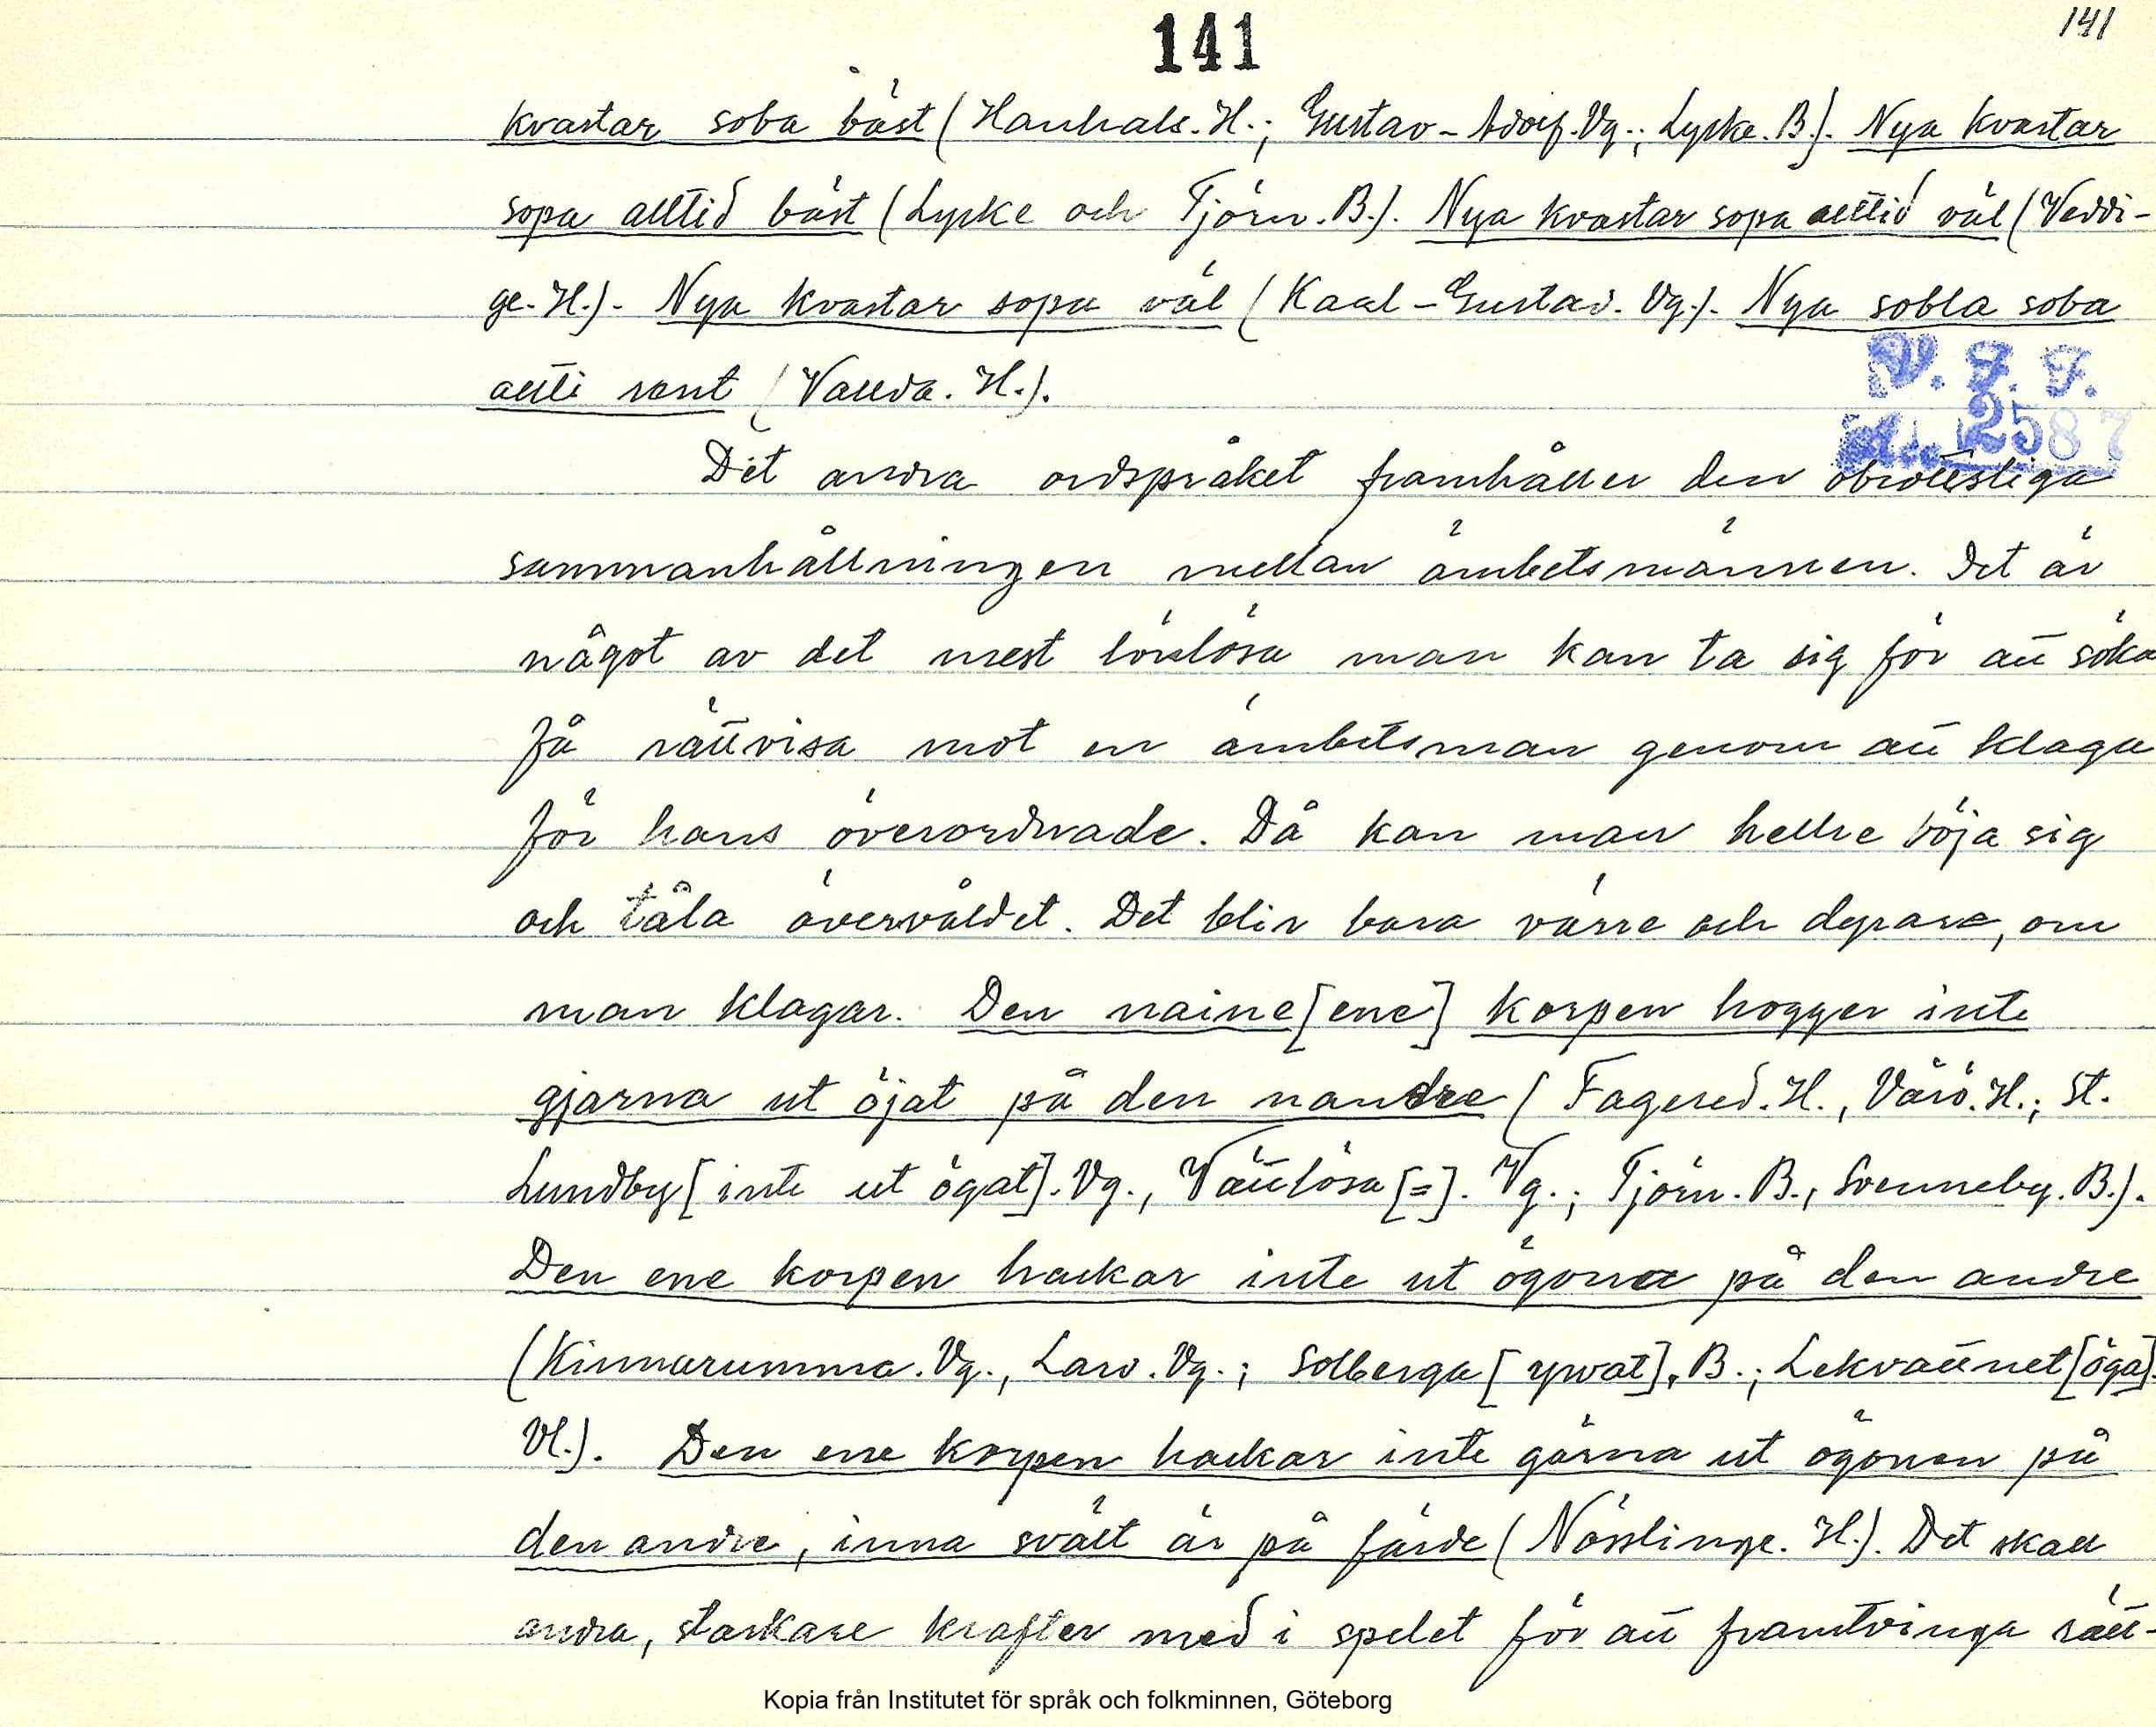 141
141
kvastar soba bäst (Hanhals. H.; Gustav-Adolf. Vg.; Lycke. B.). Nya kvastar
sopa alltid bäst (Lycke och Tjörn. B.). Nya kvastar sopa alltid väl (Veddi-
ge. H.). Nya kvastar sopa väl (Karl-Gustav. Vg.). Nya sobla soba
allti rent (Vallda. H.).
V. F. F.
2587
Det andra ordspråket framhåller den obrottsliga
sammanhållningen mellan ämbetsmännen. Det är
något av det mest lönlösa man kan ta sig för att söka
få rättvisa mot en ämbetsman genom att klaga
för hans överordnade. Då kan man hellre böja sig
och tåla övervåldet. Det blir bara värre och dyrare, om
man klagar. Den naine [ene] korpen hogger inte
gjarna ut öjat på den nandre (Fagered. H., Värö. H.; St.
Lundby [inte ut ögat]. Vg., Vättlösa [=]. Vg.; Tjörn. B., Svenneby. B.).
Den ene korpen hackar inte ut ögona på den andre
(Kinnarumma. Vg., Larv. Vg.; Solberga [ywat]. B.; Lekvattnet [öga].
Vl.). Den ene korpen hackar inte gärna ut ögonen på
den andre, inna svält är på färde (Nösslinge. H.). Det skall
andra, starkare krafter med i spelet för att framtvinga rätt-
Kopia från Institutet för språk och folkminnen, Göteborg